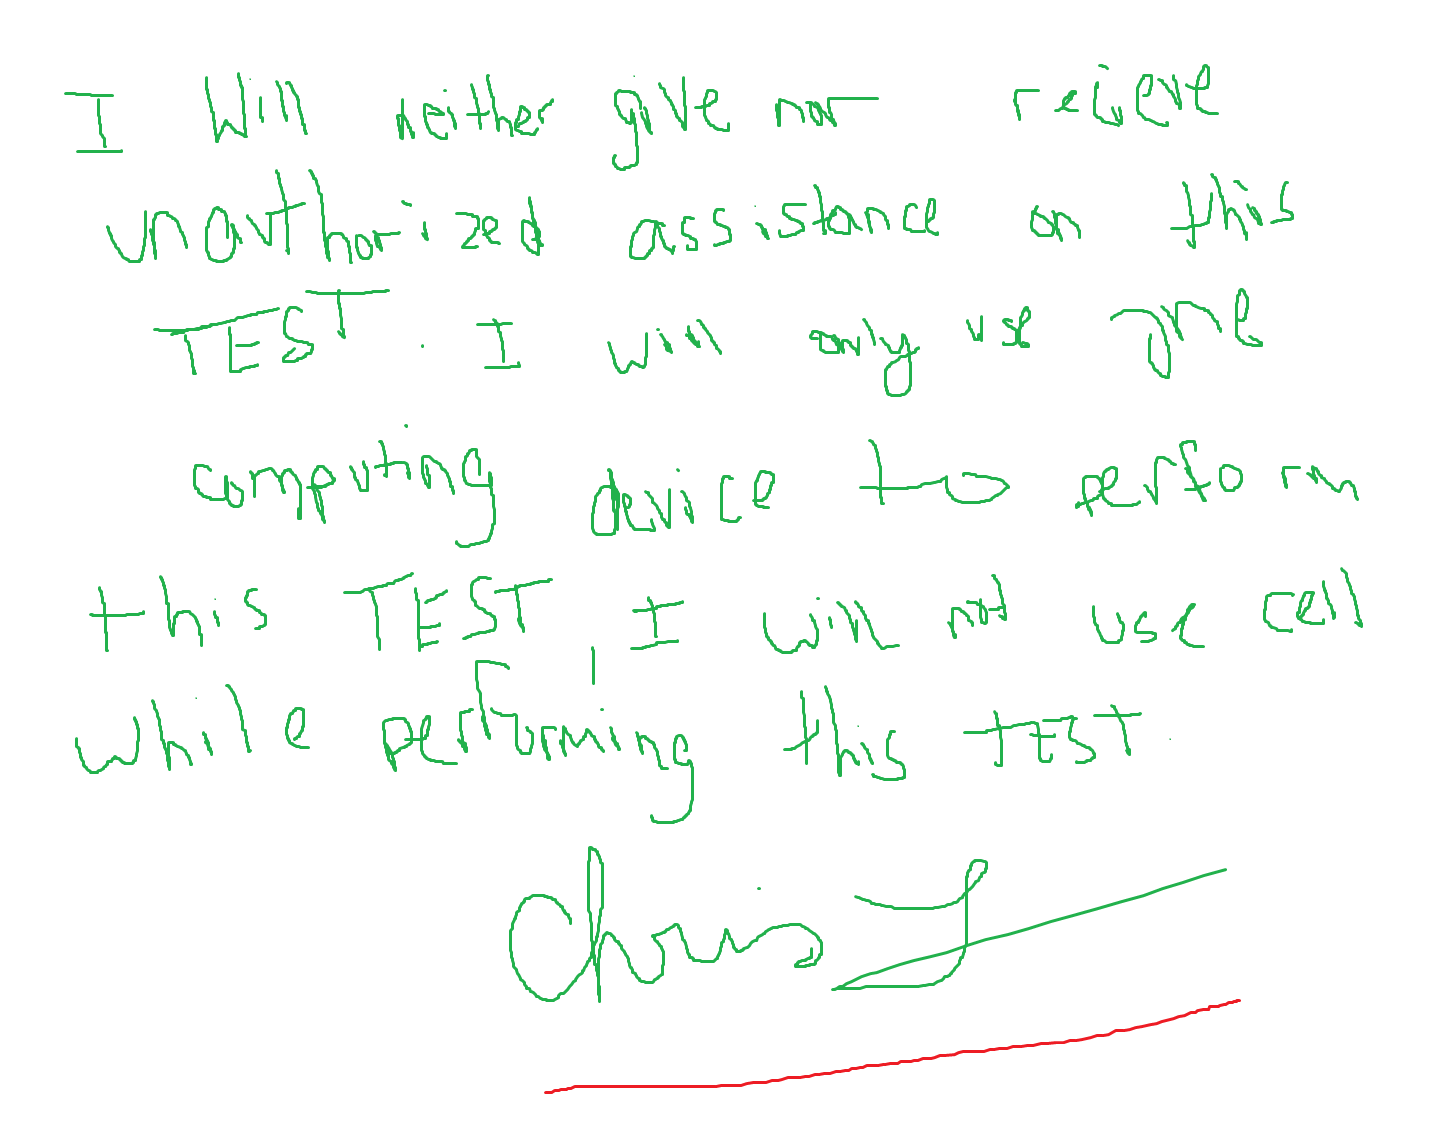 I Will neither give nor recieve
unauthorized assistance on this
TEST. I will only use one
computing device to perform
this TEST, I will not use cell
while performing this TEST.
Chris